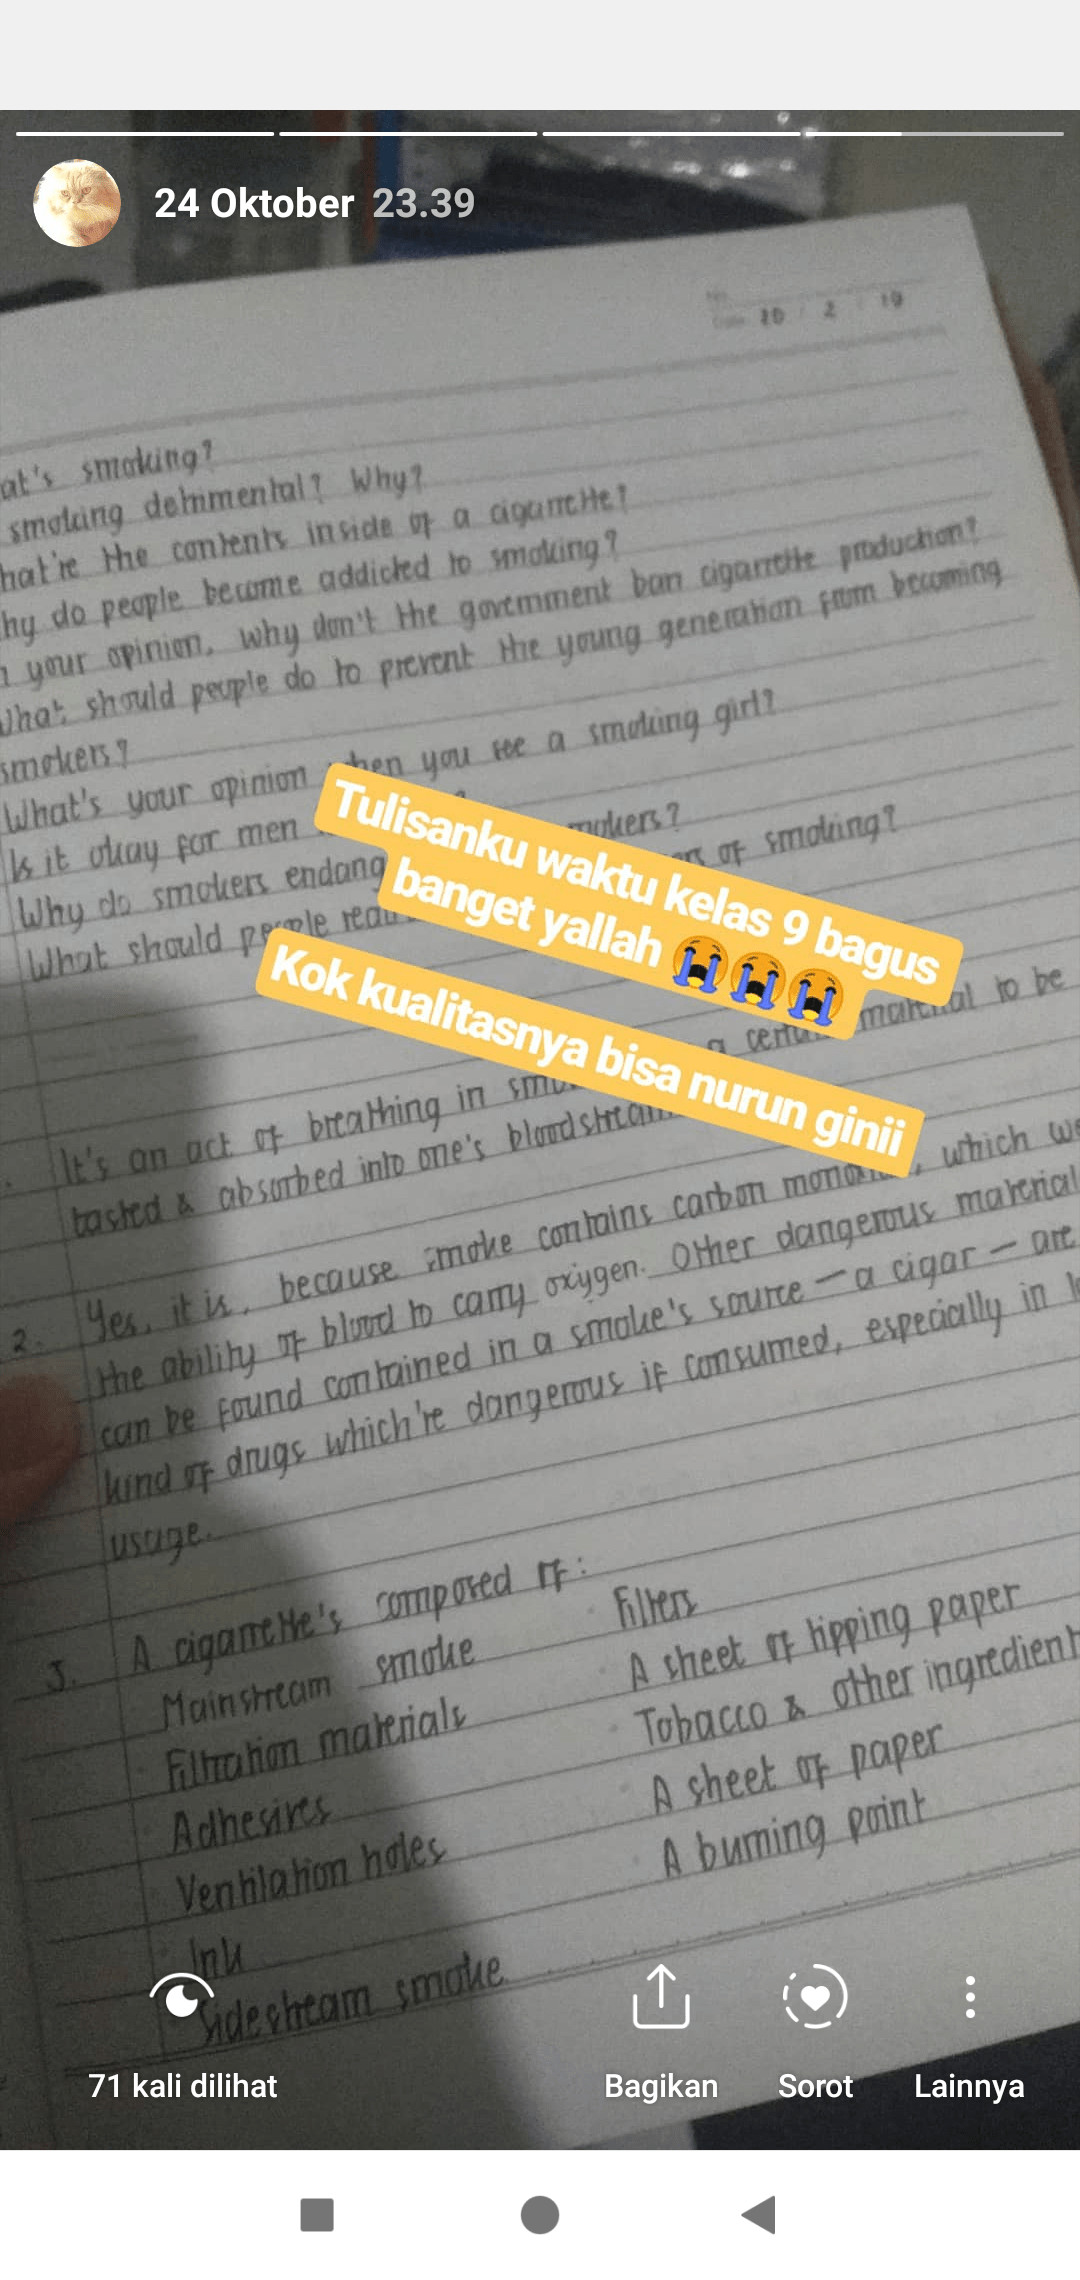 24 Oktober 23.39
10 / 2 / 19
at's smoking?
smoking detrimental? Why?
hat're the contents inside of a cigarrette?
hy do people become addicted to smoking?
n your opinion, why don't the government ban cigarrette production?
What should people do to prevent the young generation from becoming
smokers?
What's your opinion when you see a smoking girl?
Is it okay for men mokers?
Why do smokers endang of smoking?
What should people
Tulisanku waktu kelas 9 bagus
banget yallah 😭😭😭
Kok kualitasnya bisa nurun ginii
It's an act of breathing in a material to be
tasted & absorbed into one's bloodstream
2. Yes, it is, because smoke contains carbon , which
the ability of blood to carry oxigen. Other dangerous material
can be found contained in a smoke's source — a cigar — are
kind of drugs which're dangerous if consumed, especially in
usage.
3. A cigarrette's composed of:
Mainstream smoke
Filtration materials
Adhesives
Ventilation holes
Ink
Sidestream smoke
Filters
A sheet of tipping paper
Tobacco & other ingredient
A sheet of paper
A burning point
71 kali dilihat
Bagikan
Sorot
Lainnya